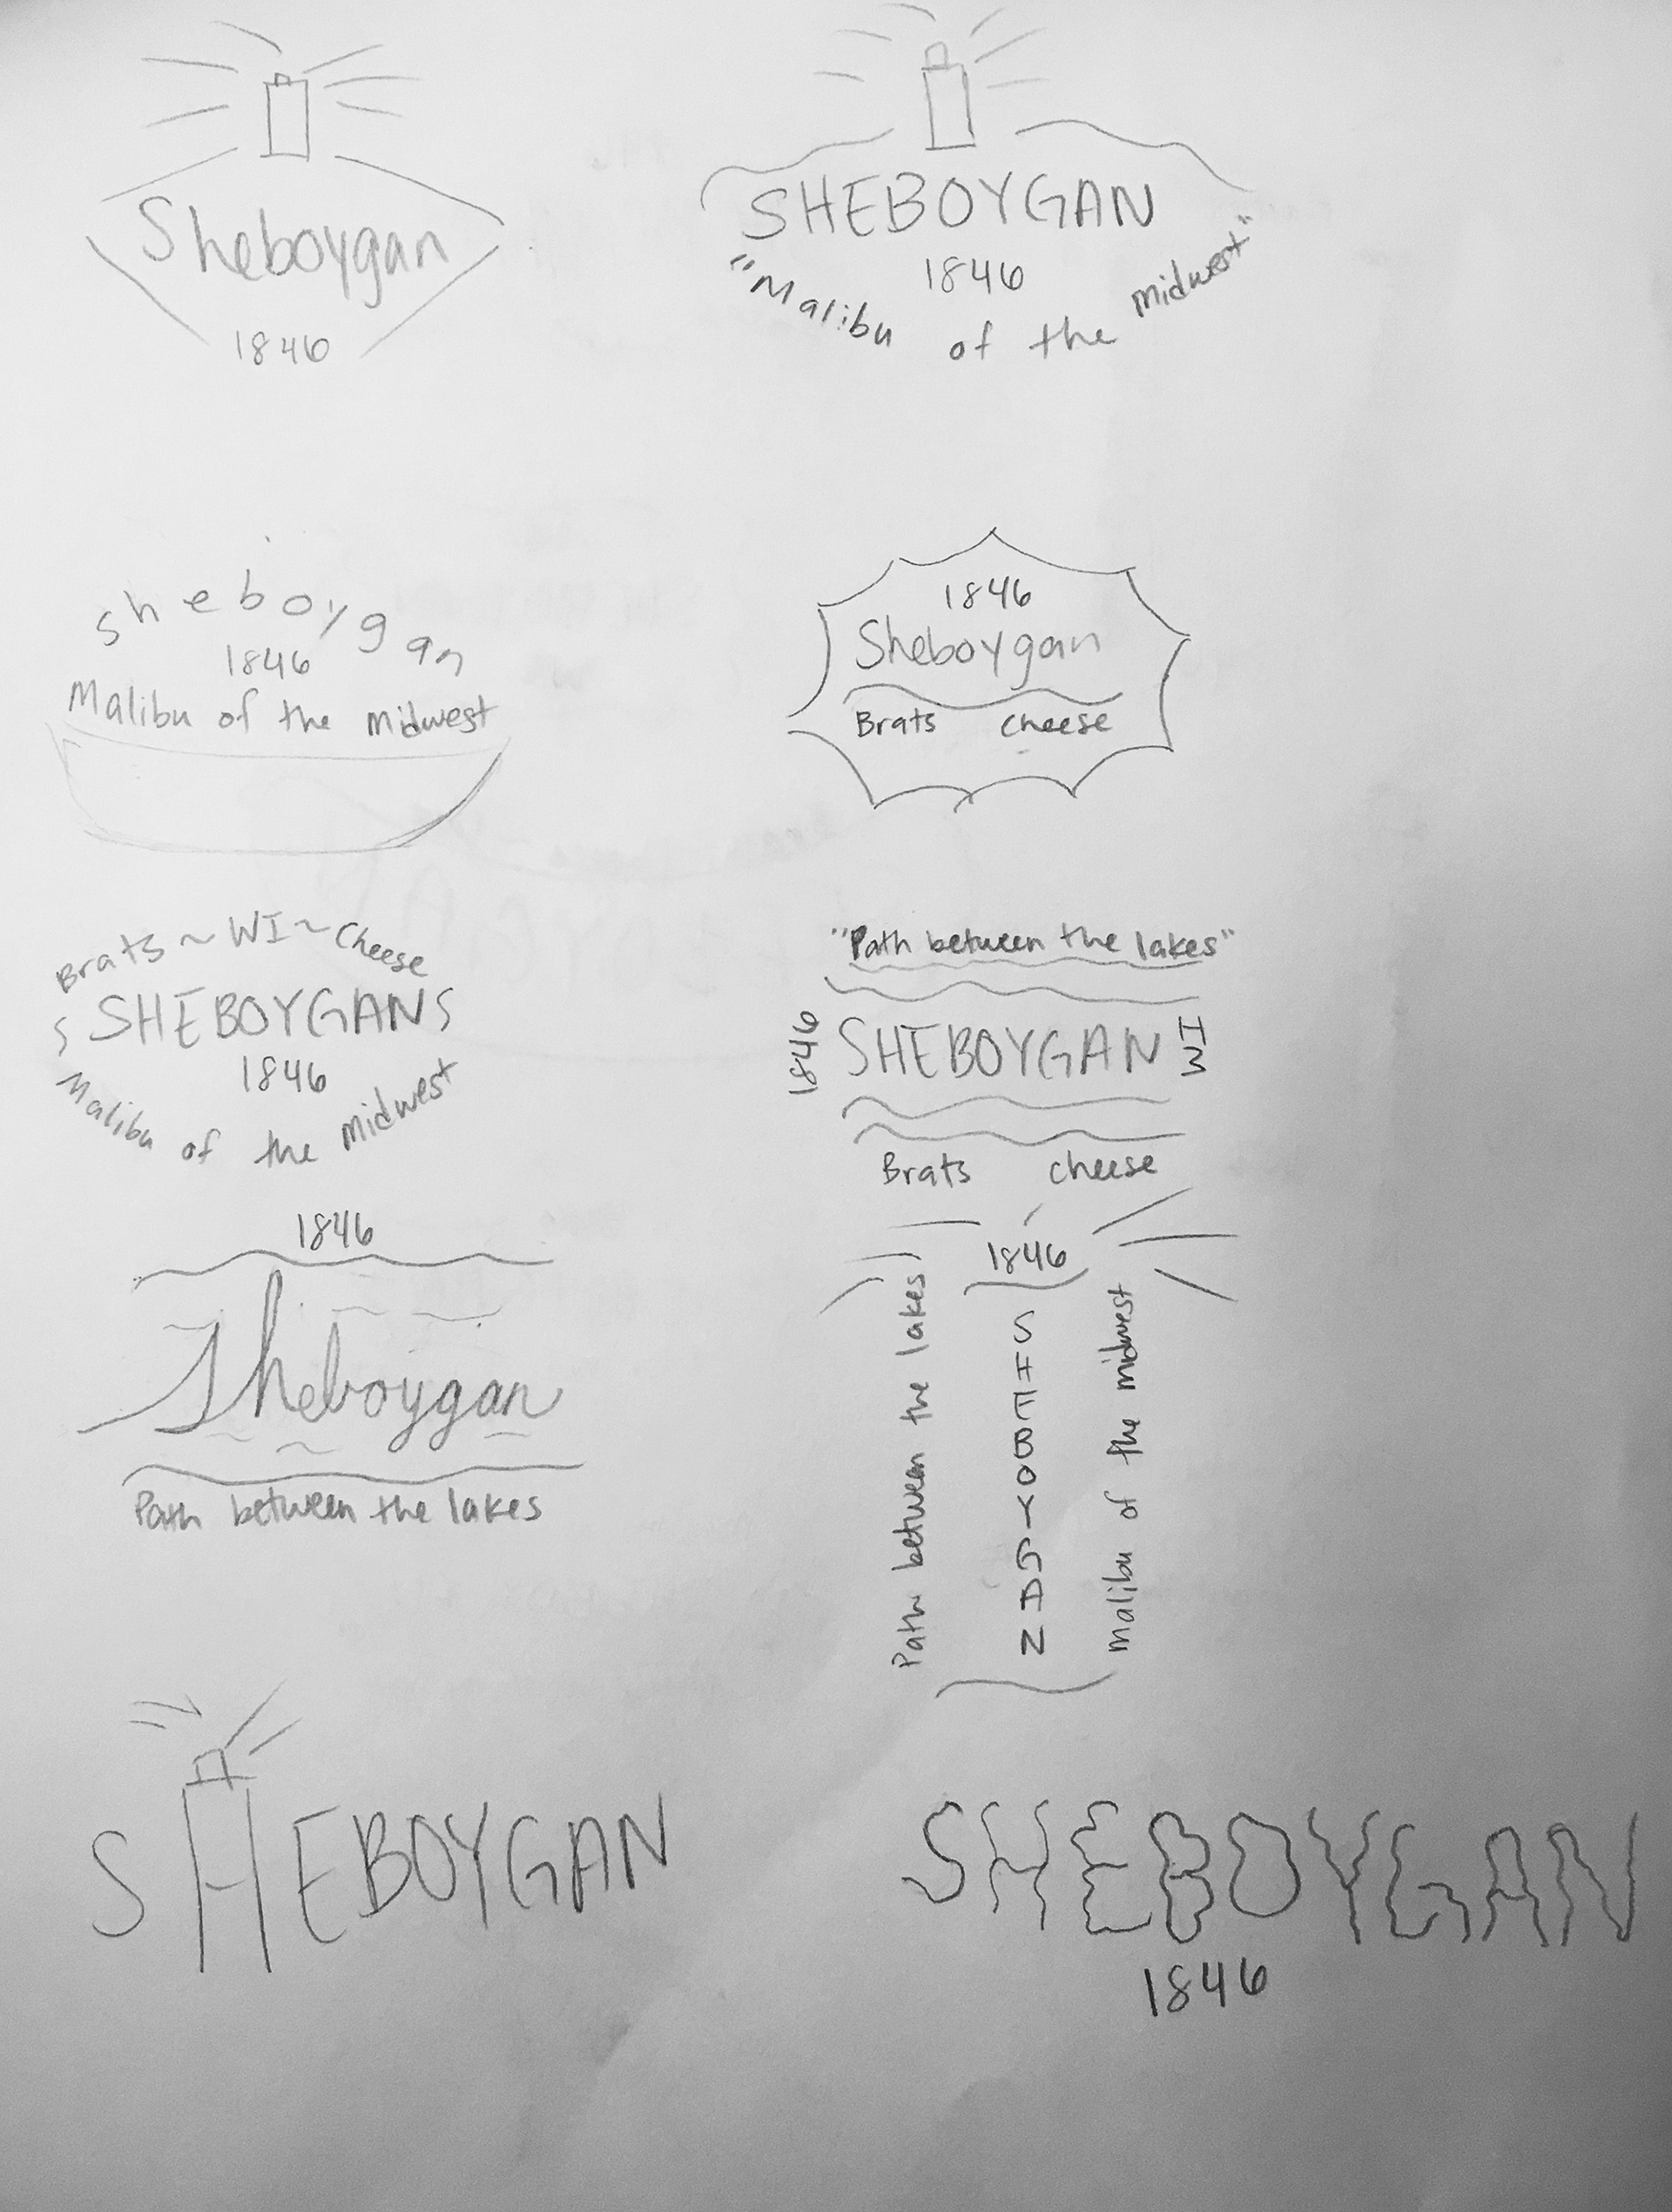 Sheboygan
1846
SHEBOYGAN
1846
"Malibu of the midwest"
sheboygan
1846
Malibu of the midwest
1846
Sheboygan
Brats cheese
Brats ~ WI ~ Cheese
SHEBOYGAN
1846
Malibu of the midwest
"Path between the lakes"
1846 SHEBOYGAN WI
Brats cheese
1846
Sheboygan
Path between the lakes
1846
Path between the lakes
SHEBOYGAN
malibu of the midwest
SHEBOYGAN
SHEBOYGAN
1846